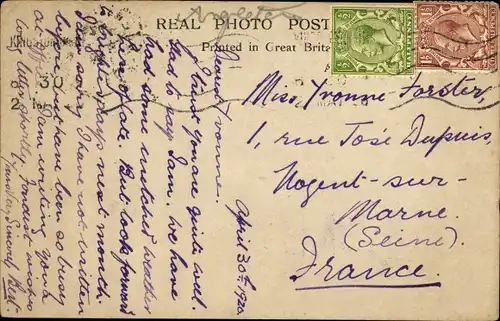 REAL PHOTO POST
Printed in Great Brita
30
April 30th 1920.
Dearest Yvonne.
I trust you are quite well.
Glad to say I am. We have
had some wretched weather
here of late. But look forward
to brighter days next month.
I am sorry I have not written
before but have been so busy
at office. Am writing you a
long letter shortly. Fondest wishes
Yours Very Sincerely, Bert
Miss Yvonne Forster,
1, rue José Dupuis,
Nogent-sur-
Marne.
(Seine).
France.